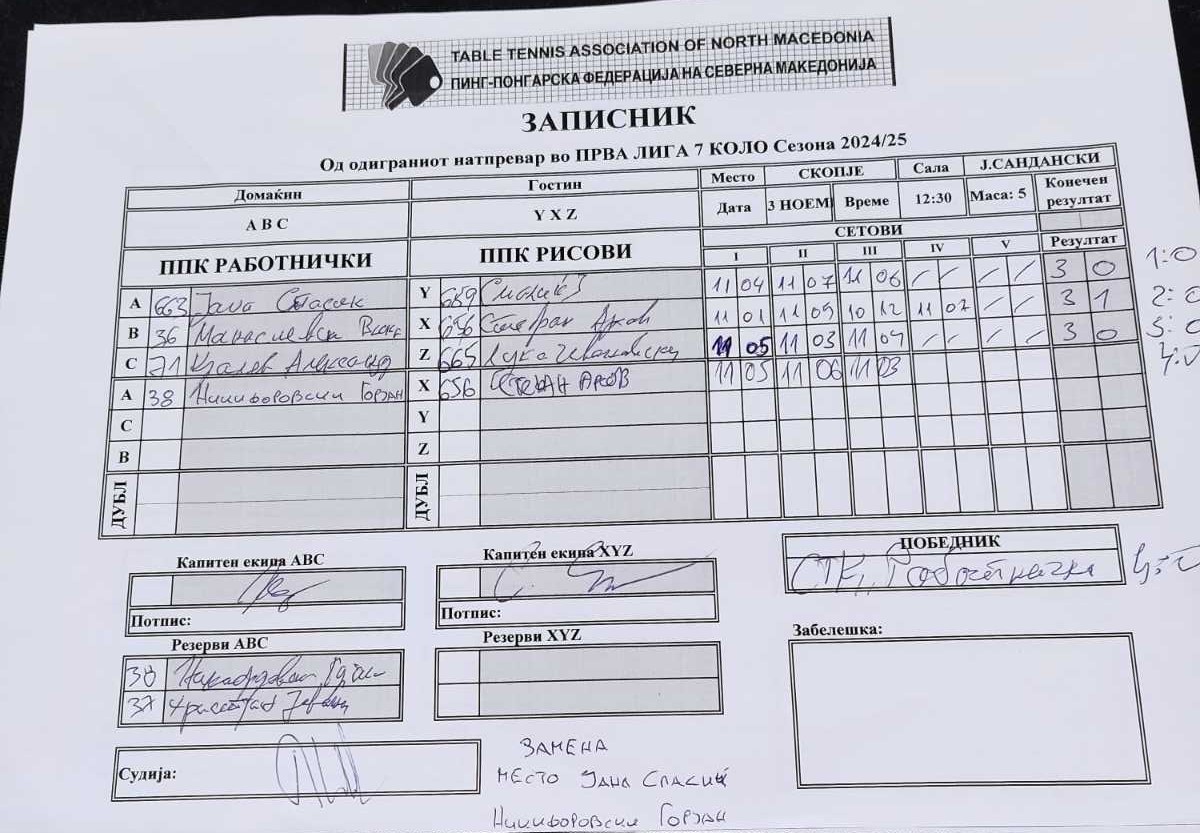 TABLE TENNIS ASSOCIATION OF NORTH MACEDONIA
ПИНГ-ПОНГАРСКА ФЕДЕРАЦИЈА НА СЕВЕРНА МАКЕДОНИЈА
ЗАПИСНИК
Од одиграниот натпревар во ПРВА ЛИГА 7 КОЛО Сезона 2024/25
Домаќин Гостин Место СКОПЈЕ Сала Ј.САНДАНСКИ
A B C Y X Z Дата 3 НОЕМ Време 12:30 Маса: 5 Конечен резултат
ППК РАБОТНИЧКИ ППК РИСОВИ СЕТОВИ
I II III IV V Резултат
A 663 Y 659 11 04 11 07 11 06 / / / / 3 0 1:0
B 36 X 656 11 01 11 09 10 12 11 07 / / 3 1 2:0
C 71 Z 665 11 05 11 03 11 07 / / / / 3 0 3:0
A 38 Никифоровски Горјан X 656 СТЕФАН АКОВ 11 05 11 06 11 03 4:0
C Y
B Z
ДУБЛ ДУБЛ
Капитен екипа ABC Капитен екипа XYZ ПОБЕДНИК
СТК Работничка 4:0
Потпис: Потпис:
Резерви ABC Резерви XYZ Забелешка:
38
37
Судија:
ЗАМЕНА
МЕСТО ЈАНА СПАСИЌ
Никифоровски Горјан